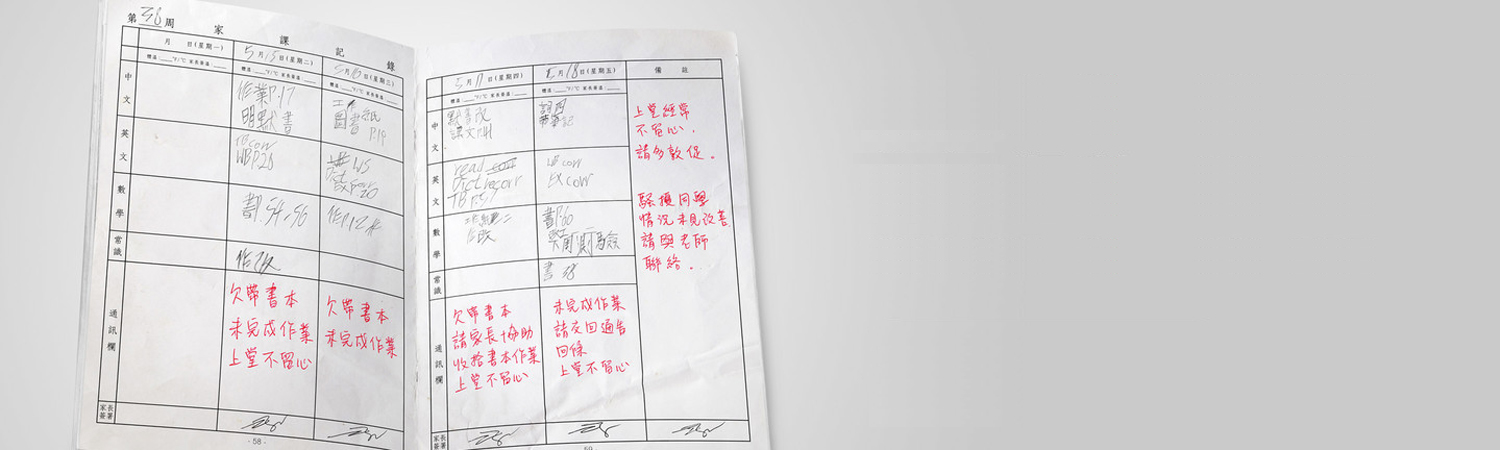 第36周
家課記錄
月 日(星期一)
5月15日(星期二)
5月16日(星期三)
體溫:____°F/°C 家長簽溫:____
體溫:____°F/°C 家長簽溫:____
體溫:____°F/°C 家長簽溫:____
中文
作業P.17
明默書
工作紙
圖書 P.19
英文
TB corr
WBP.20
WS
數學
書P.54-56
常識
作改
通訊欄
欠帶書本
未完成作業
上堂不留心
欠帶書本
未完成作業
家長簽署
- 58 -
5月17日(星期四)
5月18日(星期五)
備註
中文
默書改
英文
read corr
Dict corr
TB P.57
corr
EX corr
數學
作改
書P.60
常識
書 38
通訊欄
欠帶書本
請家長協助
收拾書本作業
上堂不留心
未完成作業
請交回通告
回條
上堂不留心
上堂經常
不留心.
請多敦促.
騷擾同學
情況未見改善
請與老師
聯絡.
家長簽署
59